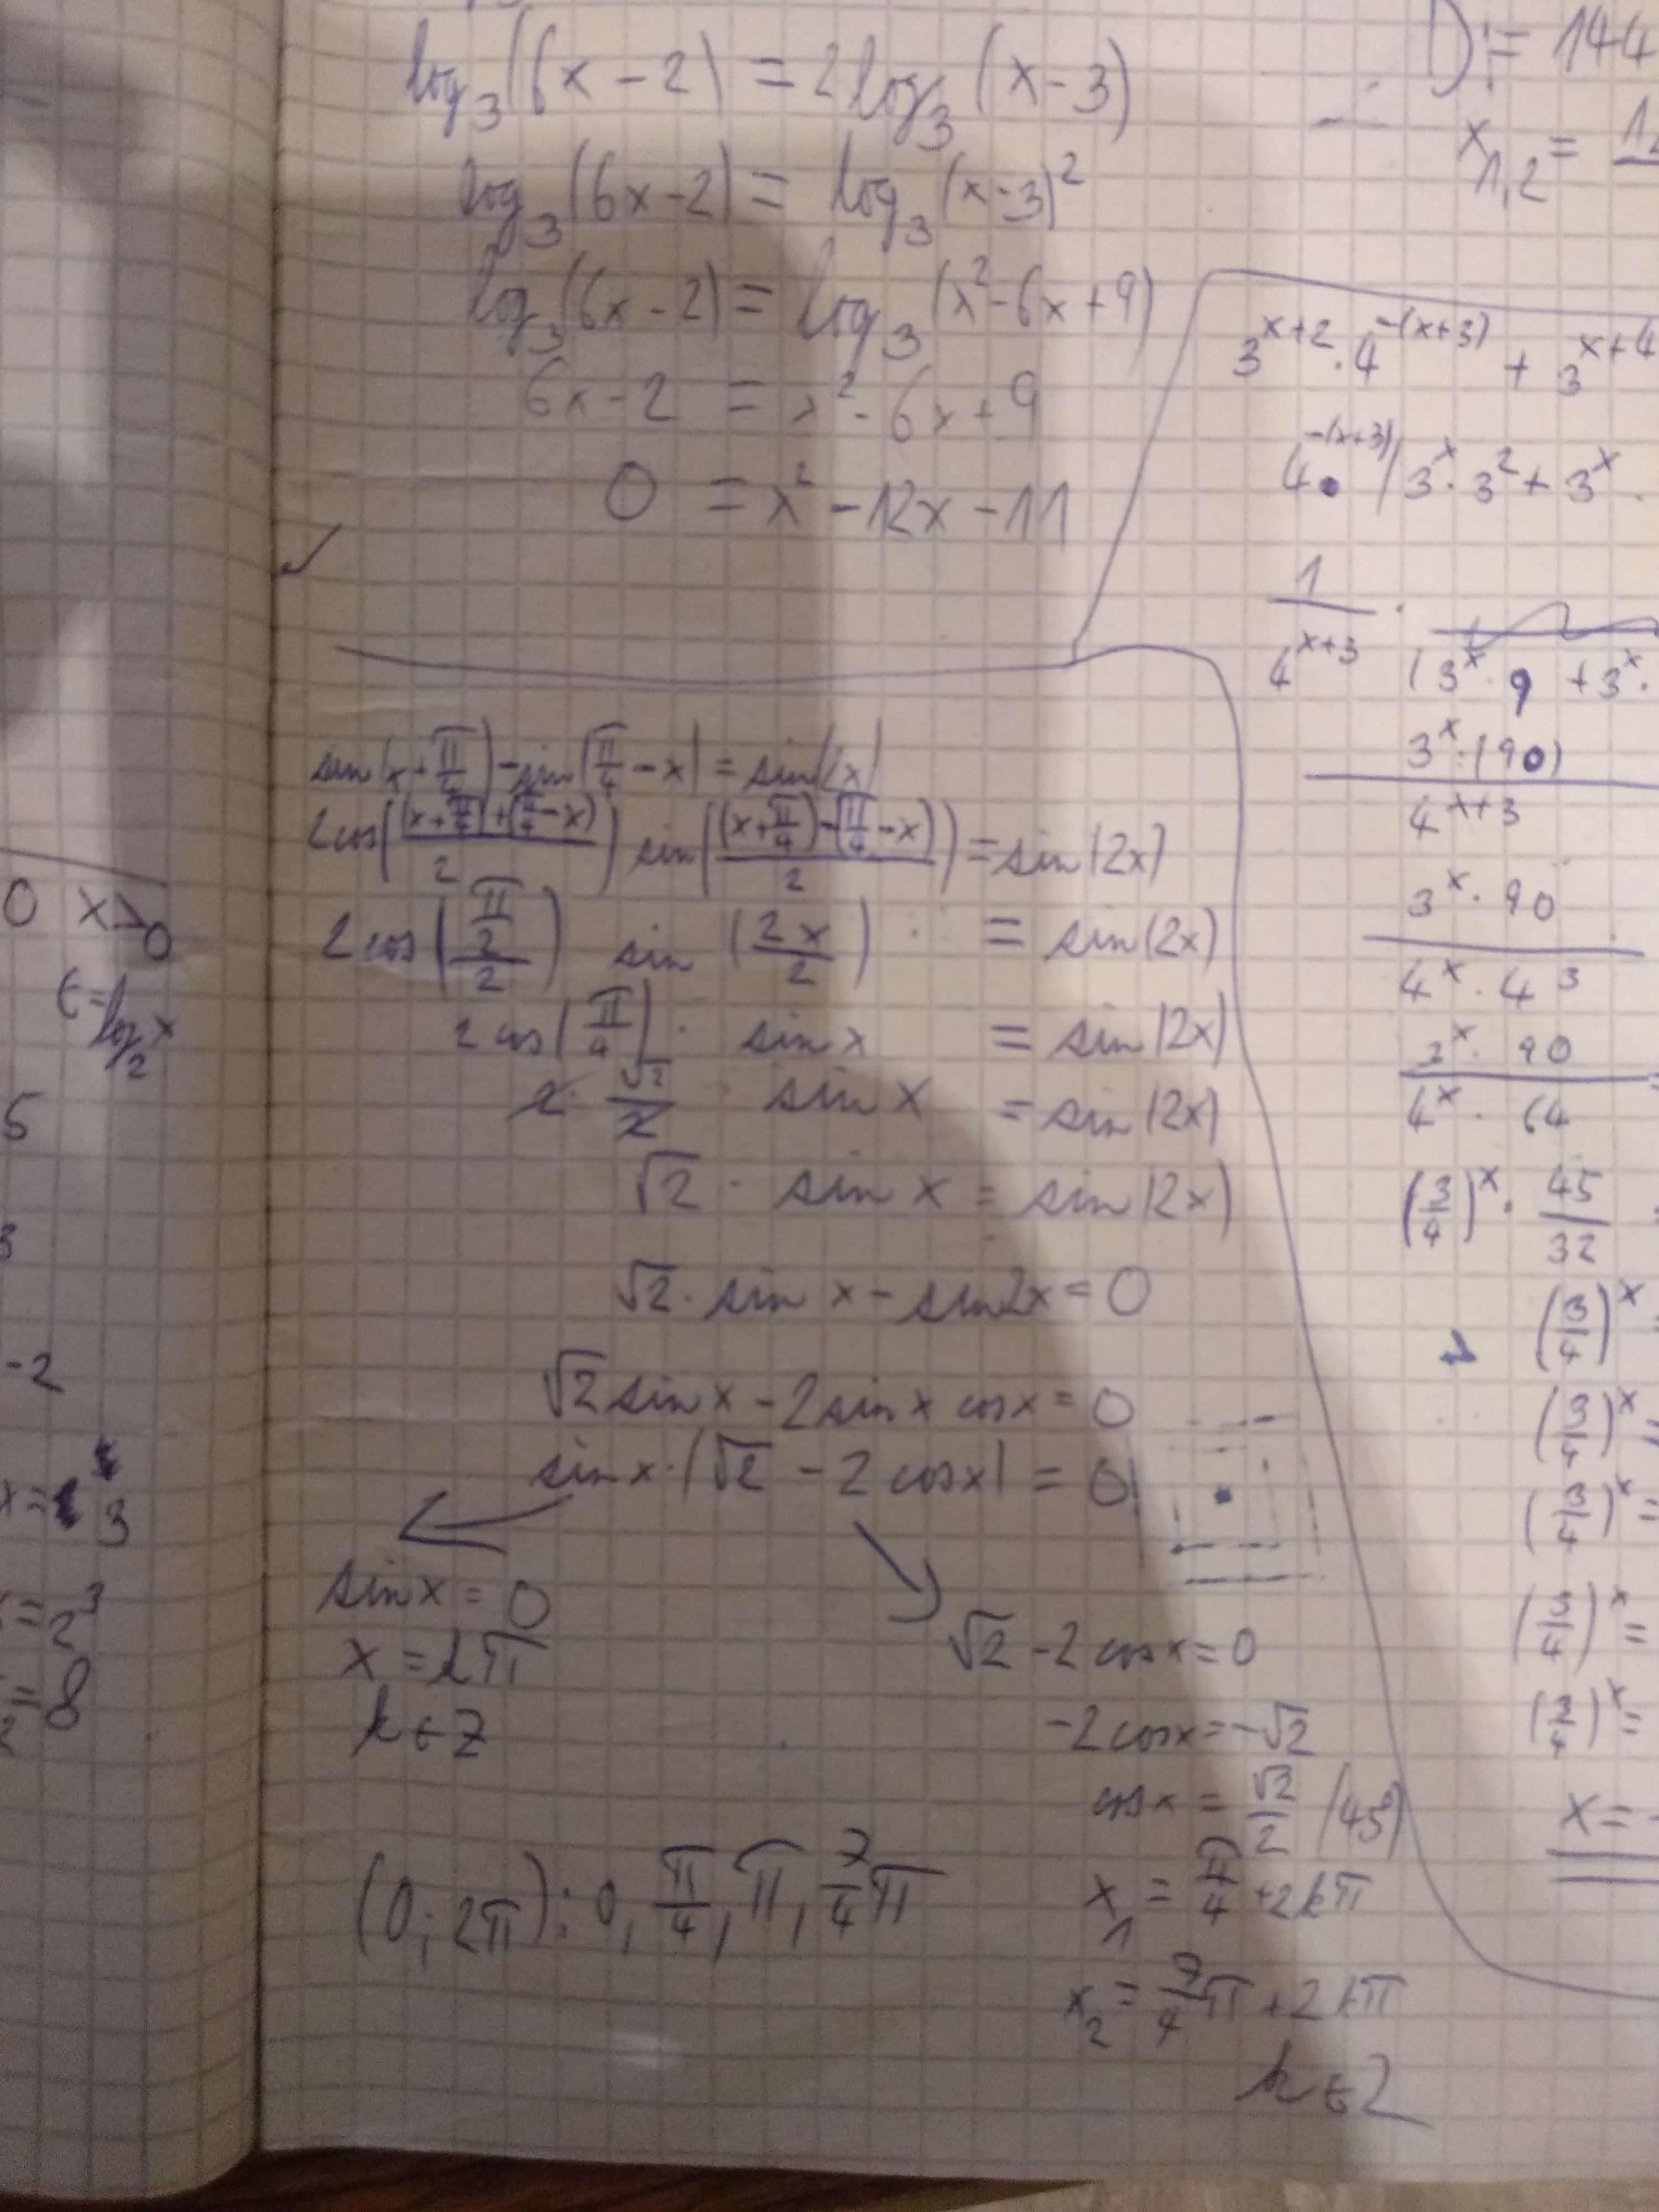 log₃(6x-2) = 2log₃(x-3)
log₃(6x-2) = log₃(x-3)²
log₃(6x-2) = log₃(x²-6x+9)
6x-2 = x²-6x+9
0 = x²-12x-11
sin(x+π/4)-sin(π/4-x) = sin(2x)
2cos(((x+π/4)+(π/4-x))/2) sin(((x+π/4)-(π/4-x))/2) = sin(2x)
2cos((π/2)/2) sin(2x/2) = sin(2x)
2cos(π/4) · sin x = sin(2x)
2 · √2/2 · sin x = sin(2x)
√2 · sin x = sin(2x)
√2 · sin x - sin2x = 0
√2 sin x - 2 sin x cos x = 0
sin x · (√2 - 2 cos x) = 0
sin x = 0
k∈Z
√2 - 2 cos x = 0
-2 cos x = -√2
cos x = √2/2 (45°)
x₁ = π/4 + 2kπ
x₂ = 7/4 π + 2kπ
k∈Z
(0; 2π): 0, π/4, π, 7/4 π
D = 144
x₁,₂ =
3^(x+2) · 4^(-(x+3)) + 3^(x+4
4^(-(x+3)) (3^x · 3² + 3^x ·
1/4^(x+3) · (3^x · 9 + 3^x ·
3^x · (90)
4^(x+3)
3^x · 90
4^x · 4³
3^x · 90
4^x · 64
(3/4)^x · 45/32 =
(3/4)^x =
(3/4)^x =
(3/4)^x =
(3/4)^x =
(3/4)^x =
x = -
0 x>0
t=log₂x
5
3
-2
3
=2³
=8